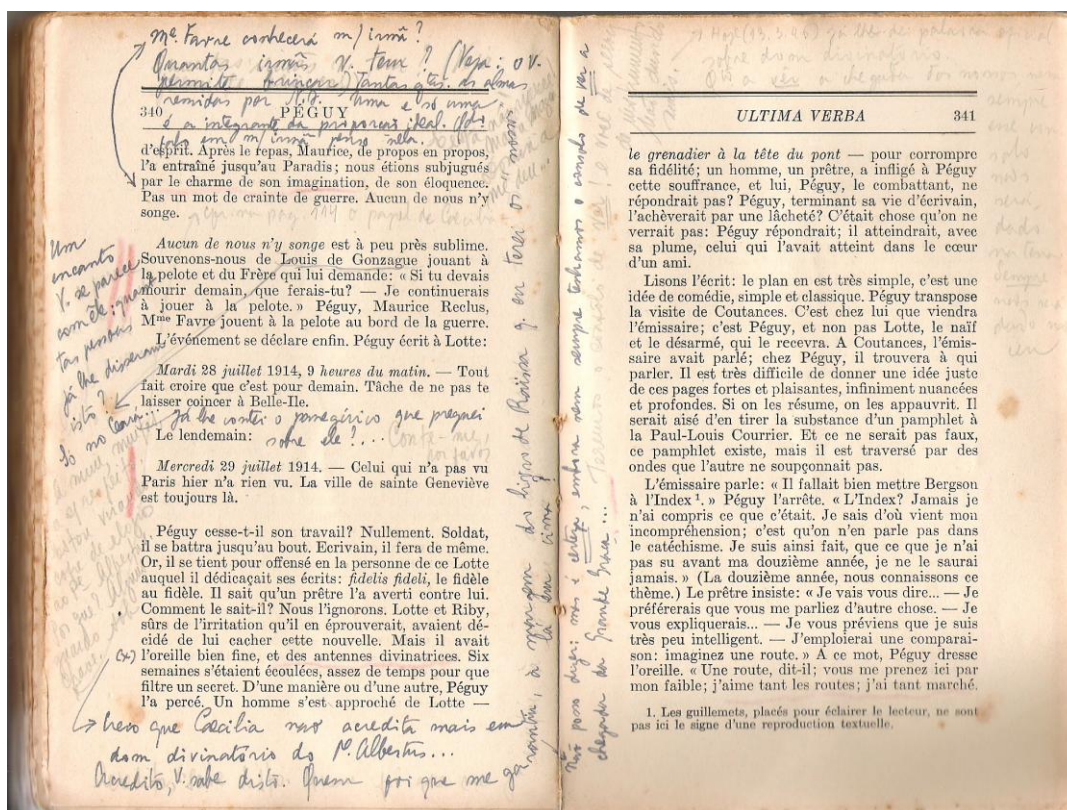 Me. Favre conhecerá m/ irmã?
Quantas irmãs V. tem? (Veja: o V.
permite brincar) Tantas qtas. as almas
remidas por N.S. Uma e só uma
é a integrante da proporção ideal. (Qdo.
falo em m/ irmã penso nela.
340 PÉGUY
d'esprit. Après le repas, Maurice, de propos en propos,
l'a entraîné jusqu'au Paradis; nous étions subjugués
par le charme de son imagination, de son éloquence.
Pas un mot de crainte de guerre. Aucun de nous n'y
songe.
Aucun de nous n'y songe est à peu près sublime.
Souvenons-nous de Louis de Gonzague jouant à
la pelote et du Frère qui lui demande: « Si tu devais
mourir demain, que ferais-tu? — Je continuerais
à jouer à la pelote. » Péguy, Maurice Reclus,
Mme Favre jouent à la pelote au bord de la guerre.
L'événement se déclare enfin. Péguy écrit à Lotte:
Mardi 28 juillet 1914, 9 heures du matin. — Tout
fait croire que c'est pour demain. Tâche de ne pas te
laisser coincer à Belle-Ile.
Já lhe contei o panegírico que preguei
Le lendemain:
sobre ele?... Conte-me,
por favor
Mercredi 29 juillet 1914. — Celui qui n'a pas vu
Paris hier n'a rien vu. La ville de sainte Geneviève
est toujours là.
Péguy cesse-t-il son travail? Nullement. Soldat,
il se battra jusqu'au bout. Ecrivain, il fera de même.
Or, il se tient pour offensé en la personne de ce Lotte
auquel il dédicaçait ses écrits: fidelis fideli, le fidèle
au fidèle. Il sait qu'un prêtre l'a averti contre lui.
Comment le sait-il? Nous l'ignorons. Lotte et Riby,
sûrs de l'irritation qu'il en éprouverait, avaient dé-
cidé de lui cacher cette nouvelle. Mais il avait
(x) l'oreille bien fine, et des antennes divinatrices. Six
semaines s'étaient écoulées, assez de temps pour que
filtre un secret. D'une manière ou d'une autre, Péguy
l'a percé. Un homme s'est approché de Lotte —
Creio que Caecilia não acredita mais em
dom divinatório do Pe. Albertus...
Acredito, V. sabe disto. Quem foi que me ga
rantiu, à margem do livro de Raïssa q. eu terei os nossos
lá em cima?
Um
encanto
V. se parece
com êle: quan
tas pessoas
já lhe disseram
isto?
Só no Ceará...
Não posso dizer: mas é certeza, embora nem sempre tenhamos o consolo de ver a
chegada da Grande Graça...
ULTIMA VERBA 341
le grenadier à la tête du pont — pour corrompre
sa fidélité; un homme, un prêtre, a infligé à Péguy
cette souffrance, et lui, Péguy, le combattant, ne
répondrait pas? Péguy, terminant sa vie d'écrivain,
l'achèverait par une lâcheté? C'était chose qu'on ne
verrait pas: Péguy répondrait; il atteindrait, avec
sa plume, celui qui l'avait atteint dans le cœur
d'un ami.
Lisons l'écrit: le plan en est très simple, c'est une
idée de comédie, simple et classique. Péguy transpose
la visite de Coutances. C'est chez lui que viendra
l'émissaire; c'est Péguy, et non pas Lotte, le naïf
et le désarmé, qui le recevra. A Coutances, l'émis-
saire avait parlé; chez Péguy, il trouvera à qui
parler. Il est très difficile de donner une idée juste
de ces pages fortes et plaisantes, infiniment nuancées
et profondes. Si on les résume, on les appauvrit. Il
serait aisé d'en tirer la substance d'un pamphlet à
la Paul-Louis Courrier. Et ce ne serait pas faux,
ce pamphlet existe, mais il est traversé par des
ondes que l'autre ne soupçonnait pas.
L'émissaire parle: « Il fallait bien mettre Bergson
à l'Index 1. » Péguy l'arrête. « L'Index? Jamais je
n'ai compris ce que c'était. Je sais d'où vient mon
incompréhension; c'est qu'on n'en parle pas dans
le catéchisme. Je suis ainsi fait, que ce que je n'ai
pas su avant ma douzième année, je ne le saurai
jamais. » (La douzième année, nous connaissons ce
thème.) Le prêtre insiste: « Je vais vous dire... — Je
préférerais que vous me parliez d'autre chose. — Je
vous expliquerais... — Je vous préviens que je suis
très peu intelligent. — J'emploierai une comparai-
son: imaginez une route. » A ce mot, Péguy dresse
l'oreille. « Une route, dit-il; vous me prenez ici par
mon faible; j'aime tant les routes; j'ai tant marché.
1. Les guillemets, placés pour éclairer le lecteur, ne sont
pas ici le signe d'une reproduction textuelle.